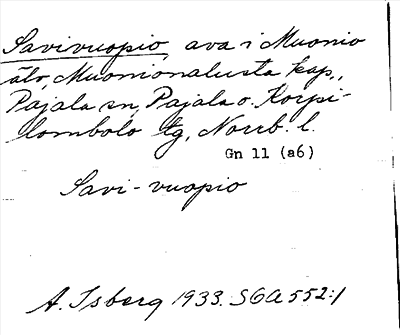 Savivuopio, ava i Muonio
älv, Muonionalusta kap.,
Pajala sn, Pajala o. Korpi-
lombolo tg, Norrb. l.
Gn 11 (a6)
Savi-vuopio
A. Isberg 1933. SOA 552:1